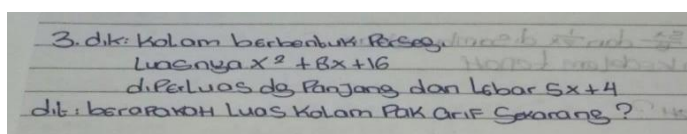 3. dik: Kolam berbentuk Perseg.
Luasnya x² + 8x + 16
diPerluas dg Panjang dan Lebar 5x+4
dit: beraPakah Luas Kolam Pak Arif Sekarang?